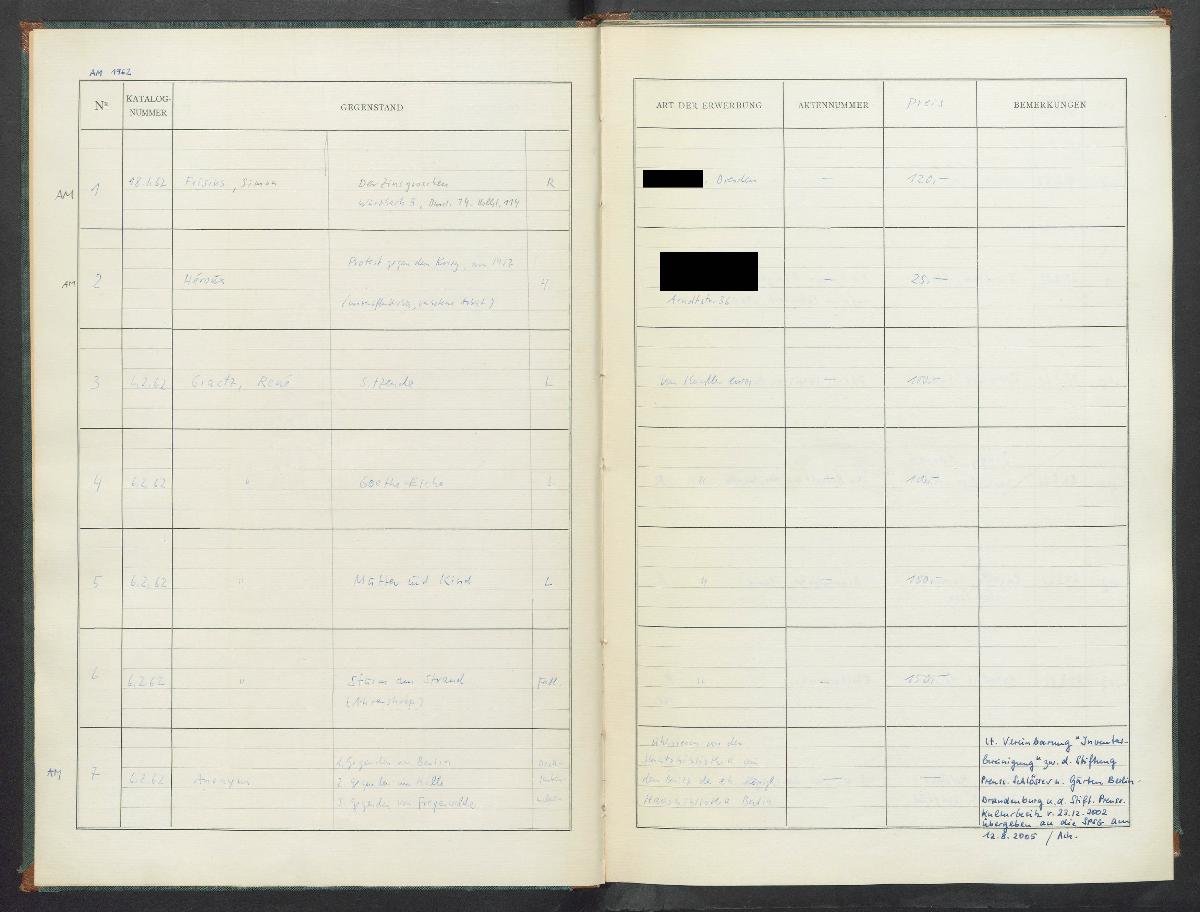 AM 1962
Nr.
KATALOG-
NUMMER
GEGENSTAND
ART DER ERWERBUNG
AKTENNUMMER
Preis
BEMERKUNGEN
AM
1
18.1.62
Frisius, Simon
Der Zinsgroschen
Wurzbach 3,
R
, Dresden
—
120,-
AM
2
Protest gegen den Krieg, um 1917
H.
Arndtstr. 36
—
25,-
3
6.2.62
Graetz, René
Sitzende
L
Vom Künstler
—
100,-
4
6.2.62
"
Goethe-Eiche
L
"
—
100,-
5
6.2.62
"
Mutter und Kind
L
"
—
150,-
6
6.2.62
"
Sturm am Strand
(Ahrenshoop)
Farbl.
"
—
150,-
AM
7
6.2.62
Anonym
1. Gegenden um Berlin
2. Gegenden um Halle
3. Gegenden von Freyenwalde
Überwiesen von der
Staatsbibliothek aus
dem Besitz der eh. Königl.
Hausbibliothek Berlin
—
—
Lt. Vereinbarung "Inventar-
bereinigung" zw. d. Stiftung
Preuss. Schlösser u. Gärten Berlin-
Brandenburg u. d. Stift. Preuss.
Kulturbesitz v. 23.12.2002
übergeben an die SPSG am
12.8.2005 /